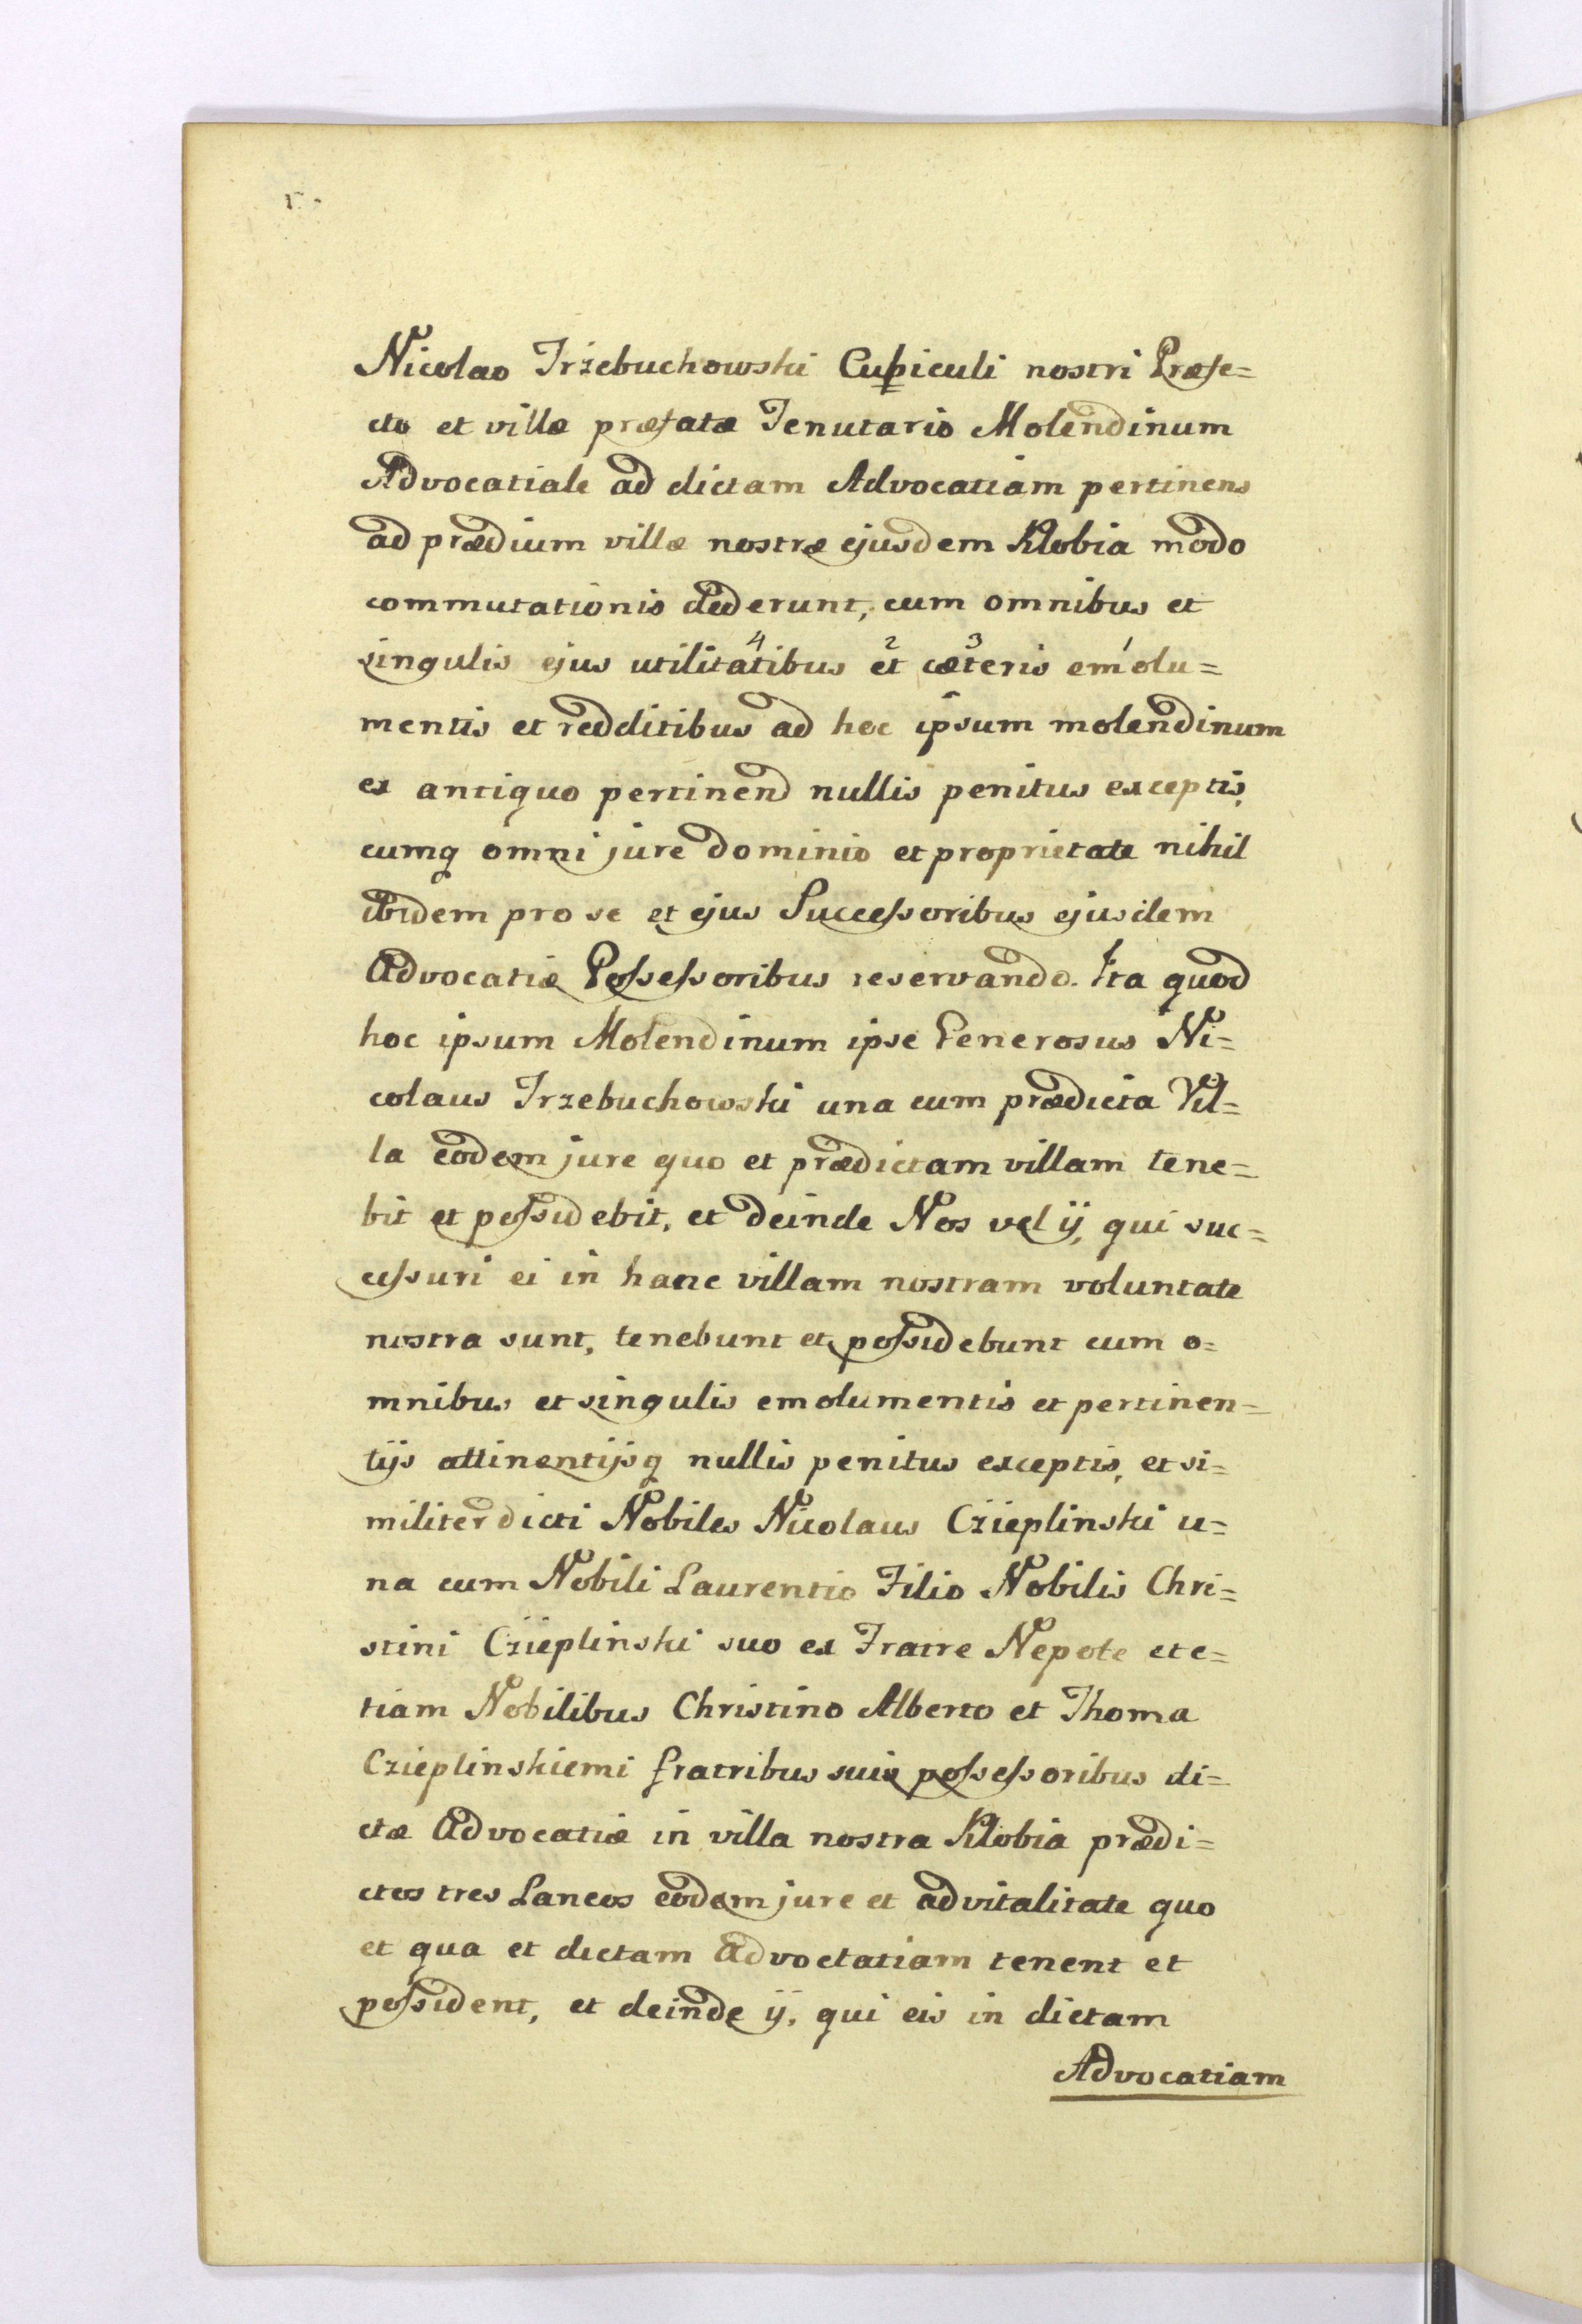 Nicolao Trzebuchowski Cupiculi nostri Præfe=
cto et villæ præfatæ Tenutario Molendinum
Advocatiale ad dictam Advocatiam pertinens
ad prædium villæ nostræ ejusdem Klobia modo
commutationis dederunt, cum omnibus et
singulis ejus utilita4tibus e2t cæ3teris em1olu=
mentis et redditibus ad hoc ipsum molendinum
ex antiquo pertinend nullis penitus exceptis,
cumq omni jure dominio et proprietate nihil
ibidem pro se et ejus Successoribus ejusdem
Advocatiæ Possessoribus reservando. Ita quod
hoc ipsum Molendinum ipse Generosus Ni=
colaus Trzebuchowski una cum prædicta Vil=
la eodem jure quo et prædictam villam tene=
bit et possidebit, et deinde Nos vel ij, qui suc=
cessuri ei in hanc villam nostram voluntate
nostra sunt, tenebunt et possidebunt cum o=
mnibus et singulis emolumentis et pertinen=
tijs attinentijsq nullis penitus exceptis, et si=
militer dicti Nobiles Nicolaus Czieplinski u=
na cum Nobili Laurentio Filio Nobilis Chri=
stini Czieplinski suo ex Fratre Nepote et e=
tiam Nobilibus Christino Alberto et Thoma
Czieplinskiemi fratribus suis possessoribus di=
ctæ Advocatiæ in villa nostra Klobia prædi=
ctos tres Laneos eodem jure et advitalitate quo
et qua et dictam Advoctatiam tenent et
possident, et deinde ij, qui eis in dictam
Advocatiam